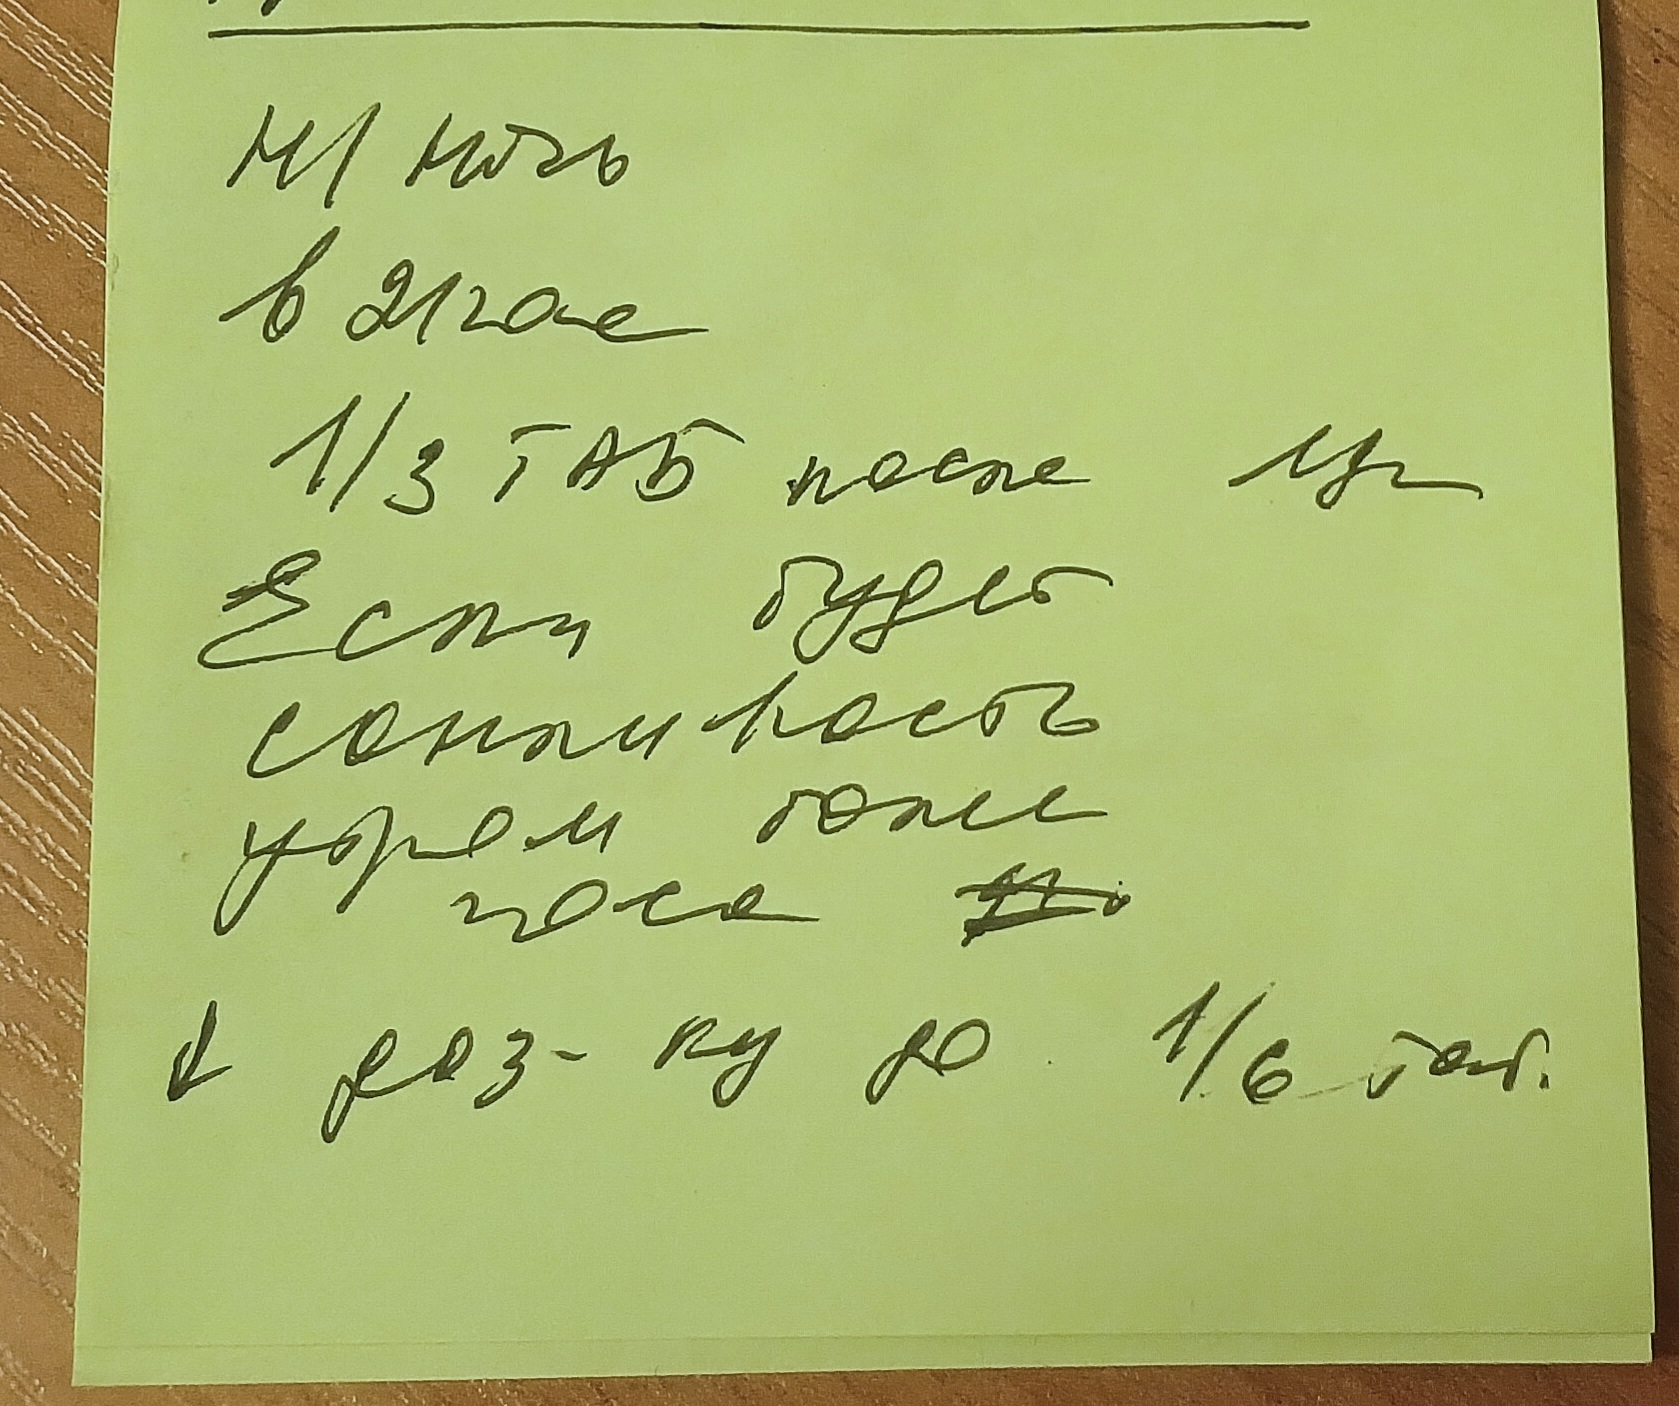 н/ ночь
в 21 час
1/3 ТАБ после
Если будет
сонливость
утром более
часа
↓ доз-ку до 1/6 таб.